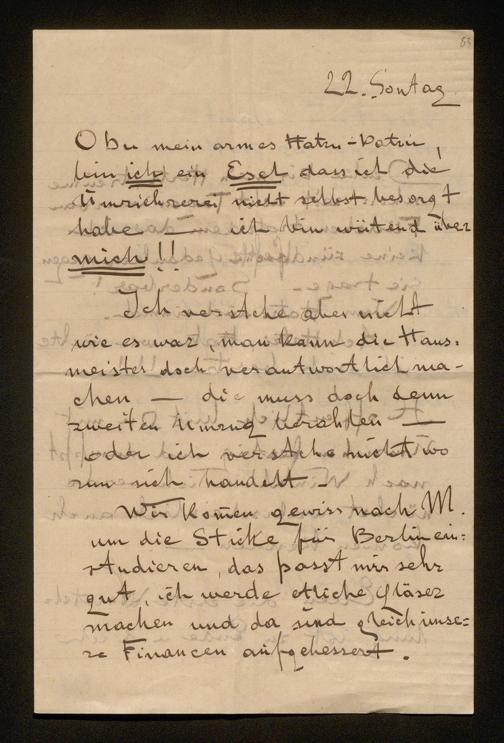 83
22. Sontag
O bu mein armes Hatsu-Katsu,
bin ich ein Esel dass ich die
Umzieherei nicht selbst besorgt
habe — ich bin wütend über
mich!!
Ich verstehe aber nicht
wie es war, man kann die Haus-
meister doch verantwortlich ma-
chen — die muss doch denn
zweiten Umzug bezahlen —
oder ich verstehe nicht wo
rum sich handelt —
Wir komen gewiss nach M.
um die Stücke für Berlin ein-
studieren, das passt mir sehr
gut, ich werde etliche Gläser
machen und da sind gleich unse-
re Financen aufgebessert.